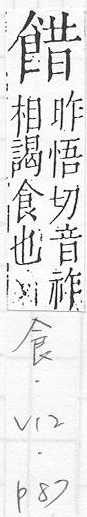 䬨
昨悟切音祚
相謁食也
食.
V12
.
p87